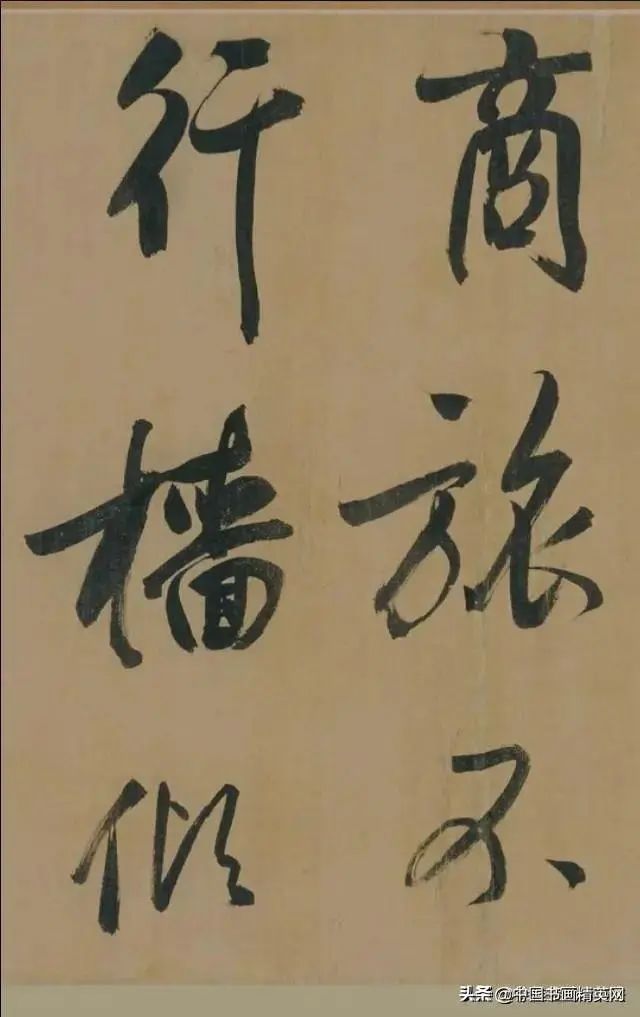 商旅不
行檣傾
头条 @中国书画精英网